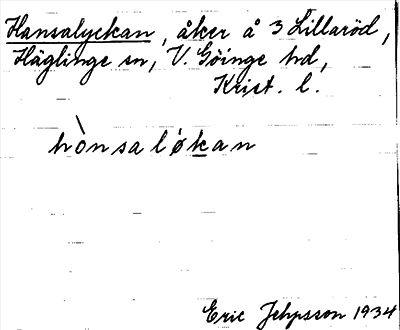 Hansalyckan, åker å 3 Lillaröd,
Häglinge sn, V. Göinge hd,
Krist. l.
hònsaløkan
Eric Jehpsson 1934